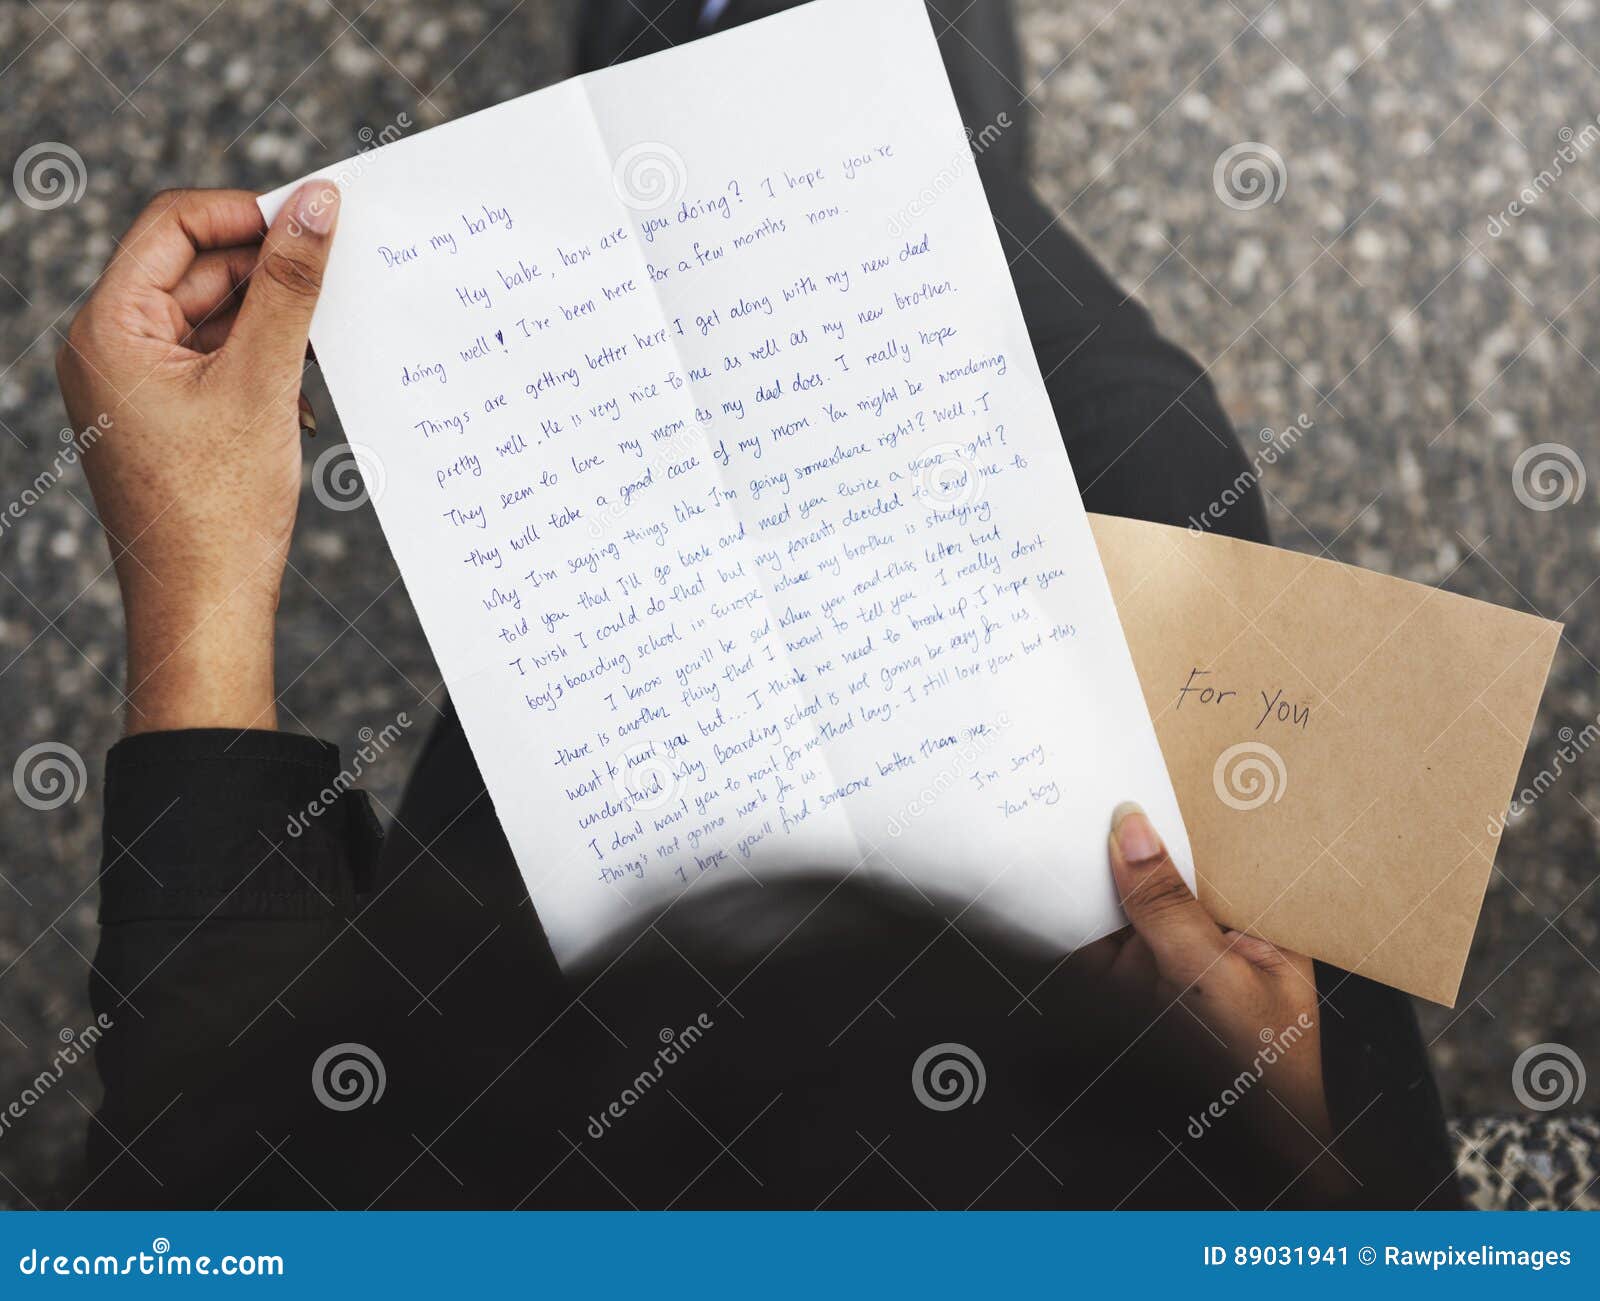 Dear my baby
Hey babe, how are you doing? I hope you're
doing well! I've been here for a few months now.
Things are getting better here. I get along with my new dad
pretty well. He is very nice to me as well as my new brother.
They seem to love my mom as my dad does. I really hope
they will take a good care of my mom. You might be wondering
why I'm saying things like I'm going somewhere right? Well, I
told you that I'll go back and meet you twice a year right?
I wish I could do that but my parents decided to send me to
boy's boarding school in Europe where my brother is studying.
I know you'll be sad when you read this letter but
there is another thing that I want to tell you. I really don't
want to hurt you but... I think we need to break up. I hope you
understand why. Boarding school is not gonna be easy for us.
I don't want you to wait for me that long. I still love you but this
thing's not gonna work for us.
I hope you'll find someone better than me.
I'm sorry.
Your boy.
For You
dreamstime.com
dreamstime.com
dreamstime.com
dreamstime.com
dreamstime.com
dreamstime.com
dreamstime.com
dreamstime.com
dreamstime.com
dreamstime.com
dreamstime.com
dreamstime.com ID 89031941 © Rawpixelimages